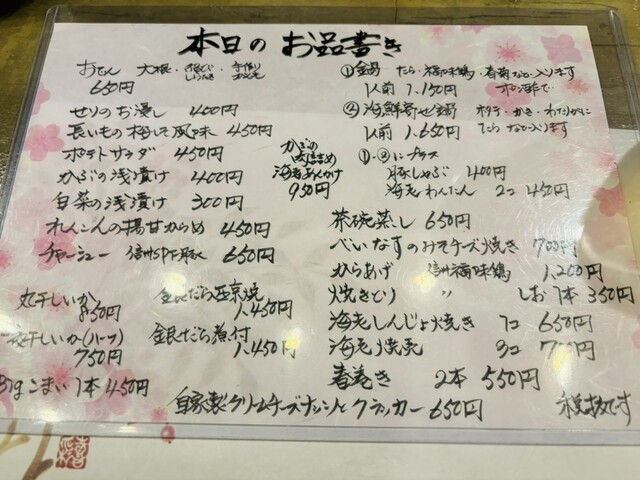 本日のお品書き
おでん 大根・
650円
せりのお浸し 400円
長いもの梅しそ風味 450円
ポテトサラダ 450円
かぶの浅漬け 400円
白菜の浅漬け 300円
れんこんの揚甘からめ 450円
チャーシュー 信州SPF豚 650円
かぶの
肉詰め
海老あんかけ
950円
丸干しいか
850円
一夜干しいか(ハーフ)
750円
Bigこまい 1本 450円
銀だら西京焼
1,450円
銀だら煮付
1,450円
自家製クリームチーズナッツとクラッカー 650円
①鍋 たら・福味鶏・春菊など入ります
1人前 1,150円 ポン酢で
②海鮮寄せ鍋 ホタテ・かき・わたりがに
1人前 1,650円 たらなど入ります
①・②にプラス
豚しゃぶ 400円
海老わんたん 2コ 450円
茶碗蒸し 650円
べいなすのみそチーズ焼き 700円
からあげ 信州福味鶏 1,200円
焼きとり 〃 しお 1本 350円
海老しんじょ焼き 1コ 650円
海老焼売 3コ 700円
春巻き 2本 550円
税抜です